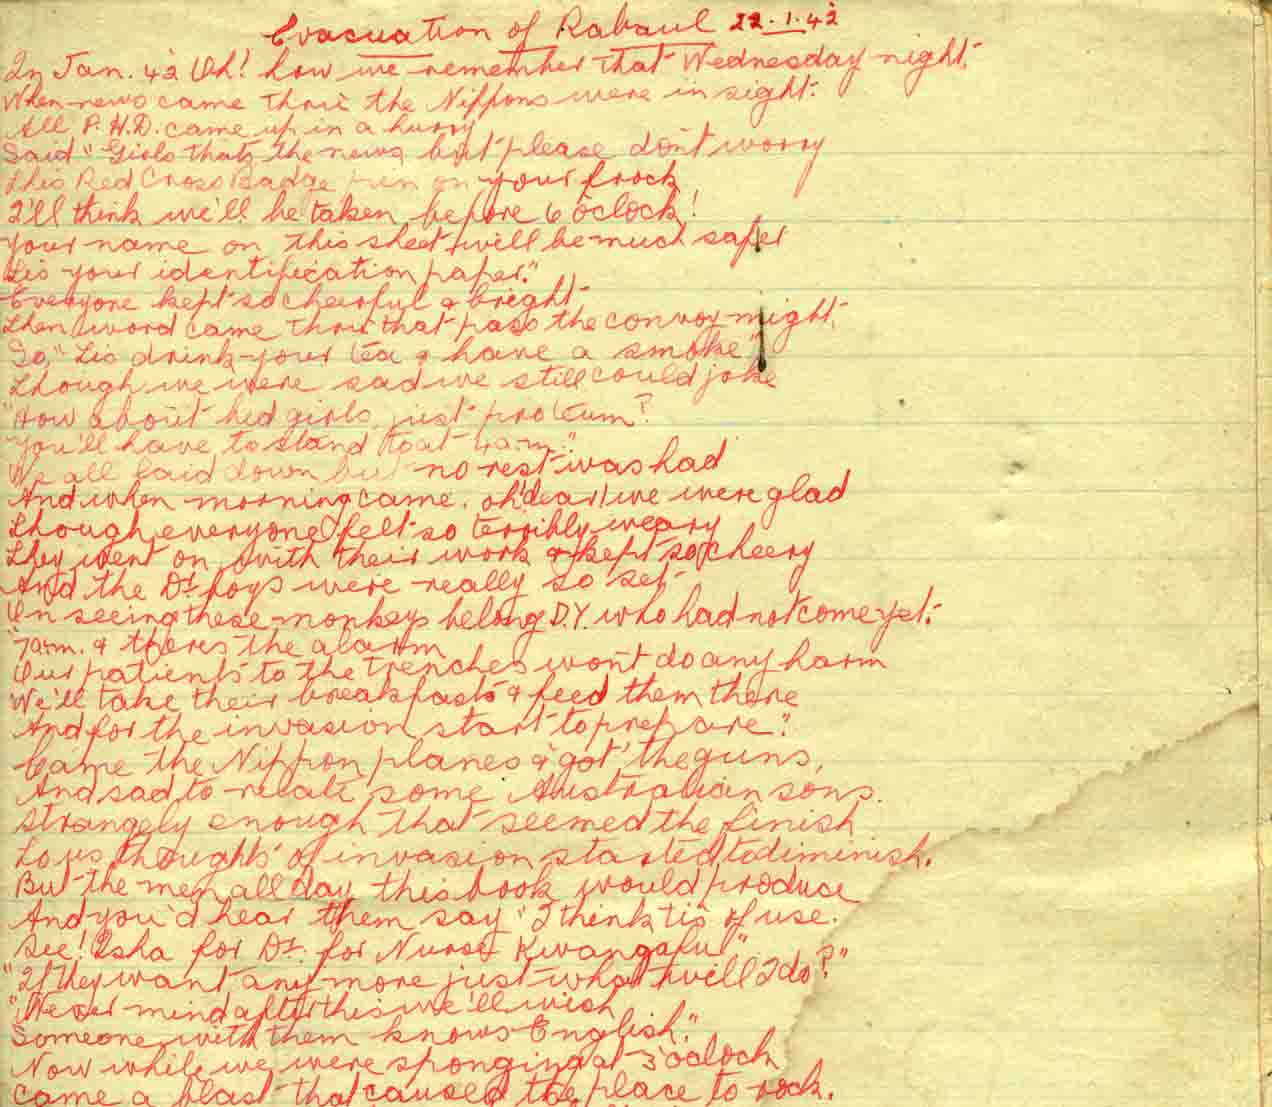 Evacuation of Rabaul 22.1.42
In Jan. 42 Oh! how we remember that Wednesday night.
When news came thru the Nippons were in sight.
All P.H.D. came up in a hurry
Said "Girls thats the news but please don't worry
This Red Cross Badge pin on your frock
I'll think we'll be taken before 6 o'clock!
Your name on this sheet will be much safer
Tis your identification paper."
Everyone kept so cheerful & bright
Then word came thru that pass the convoy might.
So, "Tis drink your tea & have a smoke"
Though we were sad we still could joke
"How about bed girls, just pro tem?
You'll have to stand to at 4 a.m."
We all laid down but no rest was had
And when morning came, oh! dear! we were glad
Though everyone felt so terribly weary
They went on with their work & kept so cheery
And the Dr boys were really so set
On seeing these monkeys belong D.Y. who had not come yet.
"7 a.m. & theres the alarm
Our patients to the trenches wont do any harm
We'll take their breakfasts & feed them there
And for the invasion start to prepare."
Came the Nippon planes & 'got' the guns,
And sad to relate some Australian sons.
Strangely enough that seemed the finish
To us thoughts of invasion started to diminish.
But the men all day this book would produce
And you'd hear them say "I think tis of use.
See! Isha for Dr. for Nurse Kwangafu"
"If they want any more just what will I do?"
"Never mind after this we'll wish
Someone with them knows English."
Now while we were sponging at 3 o'clock
Came a blast that caused the place to rock.